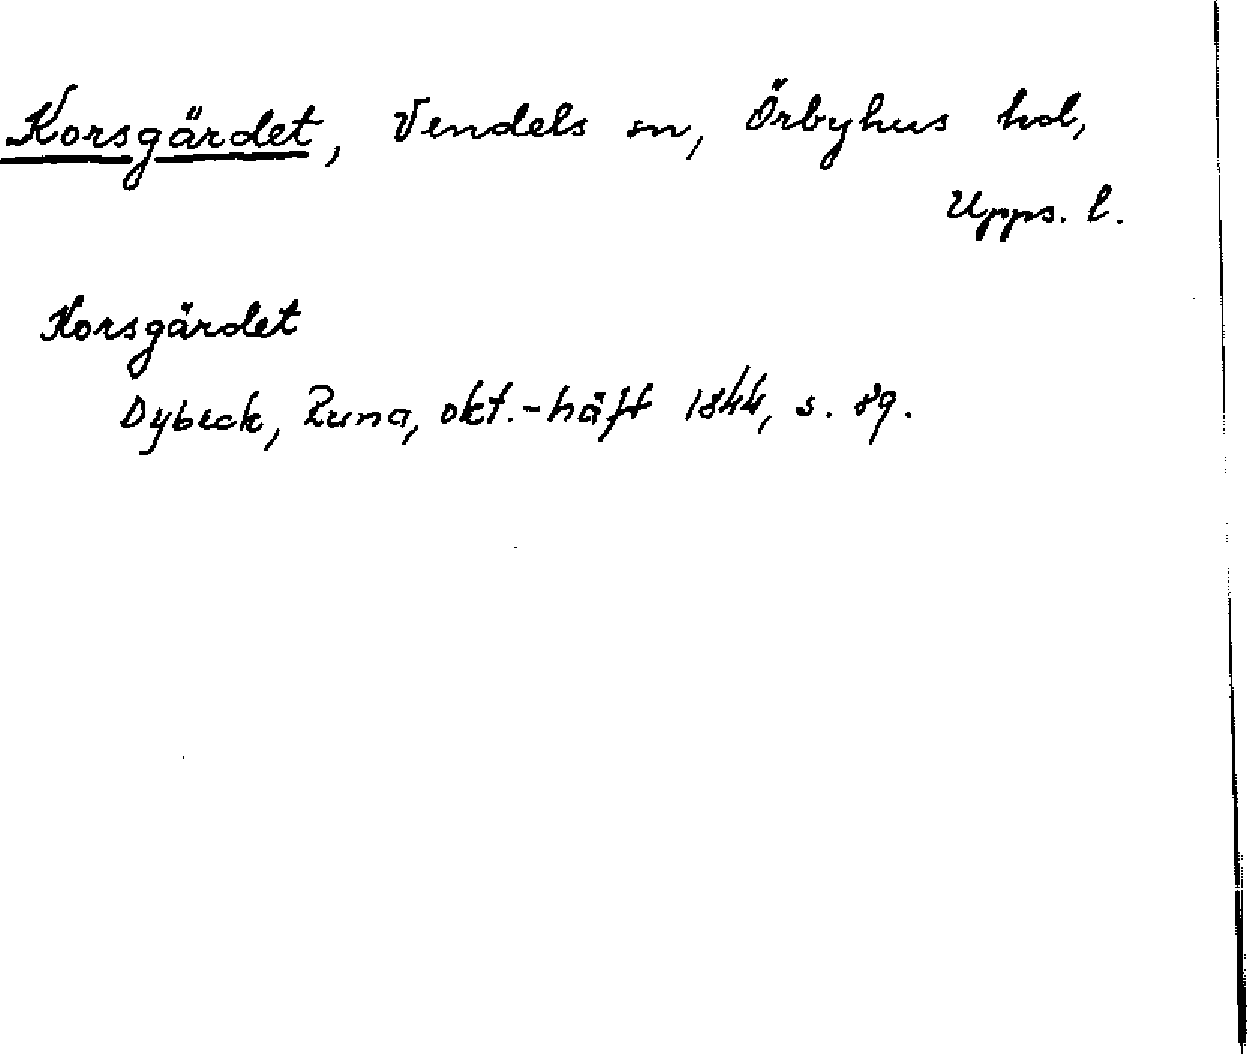 Korsgärdet, Vendels sn, Örbyhus hd,
Upps. l.
Korsgärdet
Dybeck, Runa, okt.-häft 1844, s. 89.